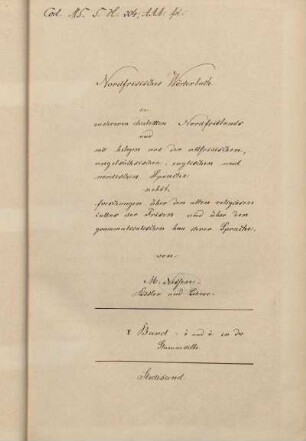 Cod. MS. S. H. 204, AAA fol.
Nordfriesisches Wörterbuch
in
mehreren dialekten Nordfrieslands
und
mit belegen aus der altfriesischen,
angelsächsischen, englischen und
nordischen Sprache
nebst
forschungen über den alten religiösen
cultus der Friesen und über den
grammatikalischen bau deren Sprache,
von
M. Nissen
Küster und Lehrer
I Band
Stedesand